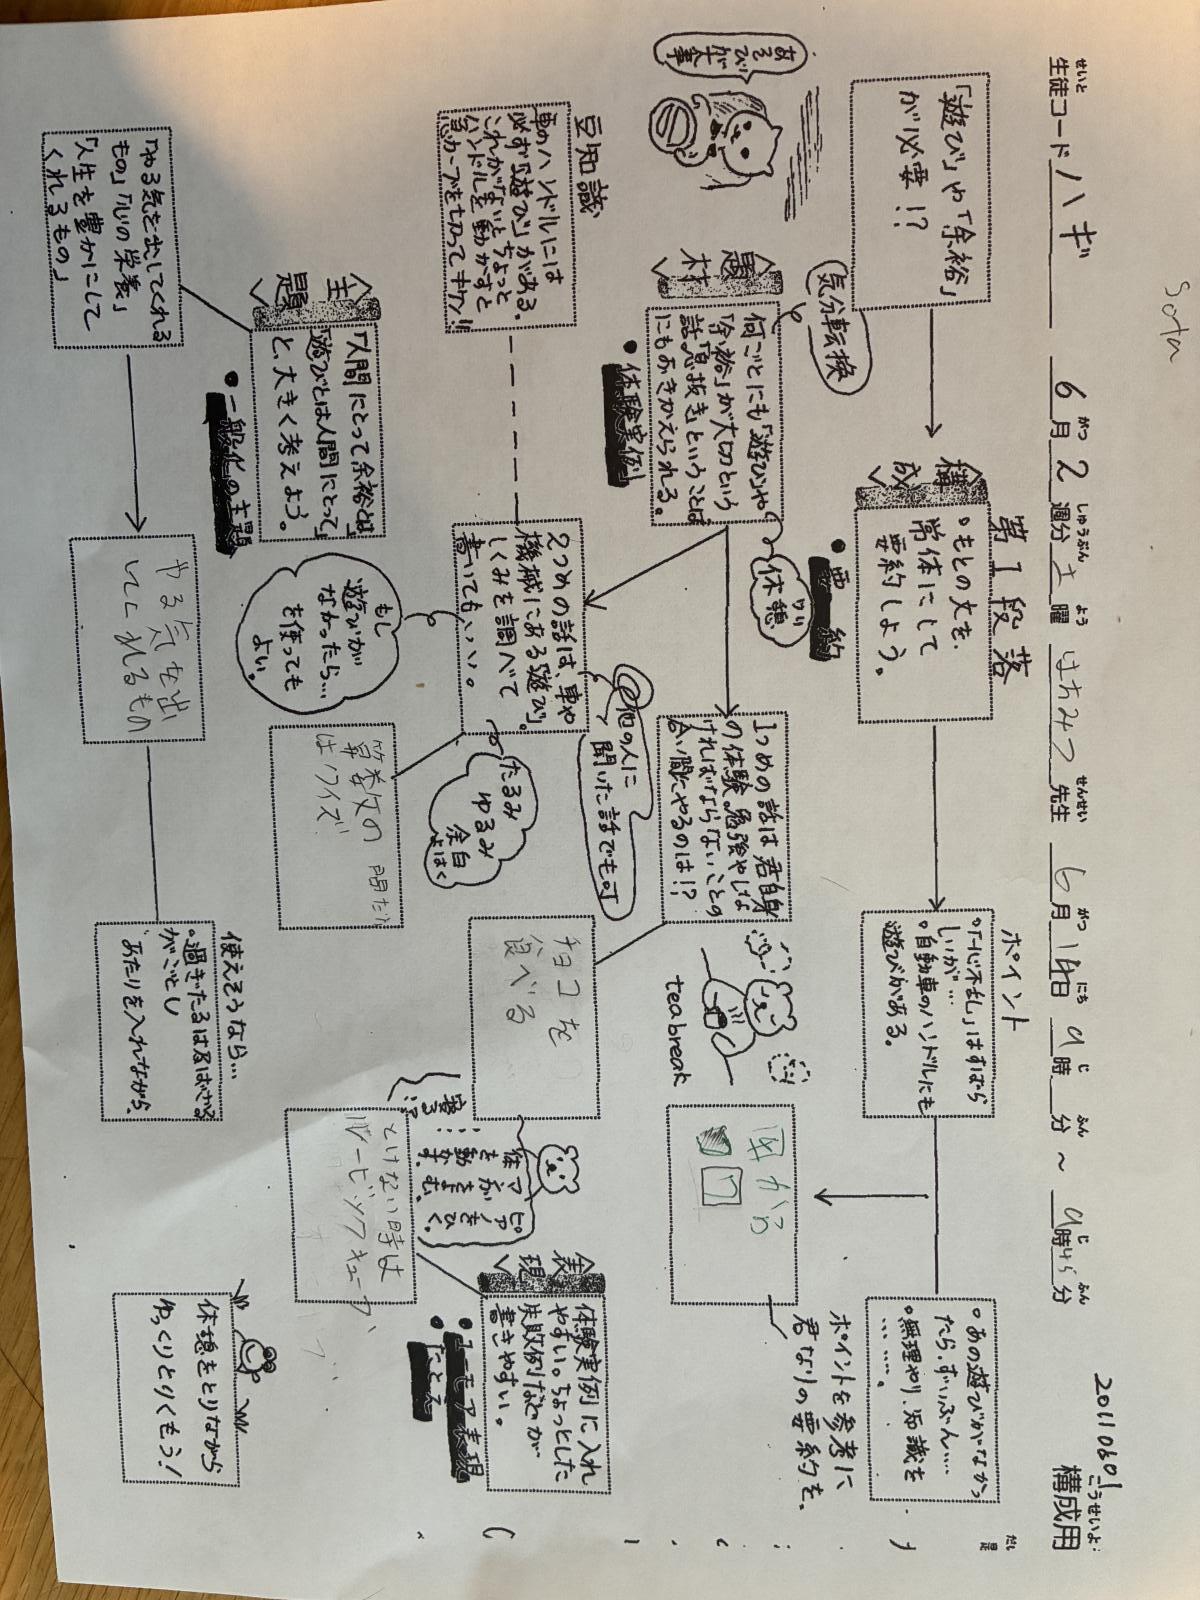 Sota
20110601
生徒コード ハギ 6月2週分 土曜 はちみつ先生 6月14日 9時 分～ 9時45分 構成用
せいと がつ しゅうぶん よう せんせい がつ にち じ ふん じ ふん こうせいよう
「遊び」や「余裕」
が必要!?
構成
第1段落
・もとの文を、
常体にして
要約しよう。
・要約
ポイント
・「一心不乱」はすばら
しいが…
・自動車のハンドルにも
遊びがある。
・あの遊びがなかっ
たら、ずいぶん……
・無理やり、知識を
…………。
ポイントを参考に
君なりの要約を。
国から
あそび
が
大事
気分転換
題材
何ごとにも「遊び」や
「余裕」が大切という
話。「息抜き」ということば
にもおきかえられる。
・体験実例
休憩
1つめの話は君自身
の体験。勉強やしな
ければならないことの
合い間にやるのは!?
tea break
チョコを
食べる
豆知識
車のハンドルには
必ず「遊び」がある。
これがないとちょっと
ハンドルを動かすと
急カーブを切ってキケン!!
2つめの話は、車や
機械にある「遊び」。
しくみを調べて
書いてもいい。
他の人に
聞いた話でも可
たるみ
ゆるみ
余白
よはく
もし
遊びが
なかったら…
を使っても
よい。
算数の問だい
はクイズ
体を動かす。
マンガをよむ。
ピアノをひく。
寝る!?
とけない時は
ルービックキューブ
表現
体験実例に入れ
やすい。ちょっとした
失敗例などが
書きやすい。
・ユーモア表現
・たとえ
主題
「人間にとって余裕とは」
「遊びとは人間にとって」
と、大きく考えよう。
・一般化の主題
「やる気を出してくれる
もの」「心の栄養」
「人生を豊かにして
くれるもの」
やる気を出
してくれるもの
使えそうなら…
・過ぎたるは及ばざる
がごとし
あたりを入れながら、
休憩をとりながら
ゆっくりとりくもう！